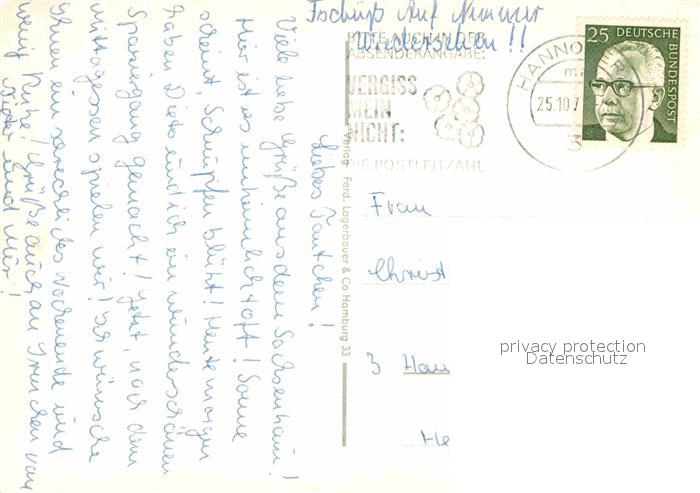 Tschüß Auf Nimmer
Wiedersehen!!
Liebes Tantchen!
Viele liebe Grüße aus dem Sachsenhain!
Hier ist es unheimlich toll! Sonne
scheint, Schnupfen blüht! Heute morgen
haben Dieter und ich ein wunderschönen
Spaziergang gemacht! Jetzt, nach dem
Mittagessen spielen wir! Ich wünsche
Ihnen ein herrliches Wochenende und
wenig Ruhe! Grüße auch an von
Dieter und Mir!
Verlag Ferd. Lagerbauer & Co Hamburg 33
BITTE AUCH IN DER
ABSENDERANGABE:
VERGISS
MEIN
NICHT:
DIE POSTLEITZAHL
HANNOVER
25.10.7
3
25 DEUTSCHE
BUNDESPOST
Frau
Christ
3 Han
He
privacy protection
Datenschutz